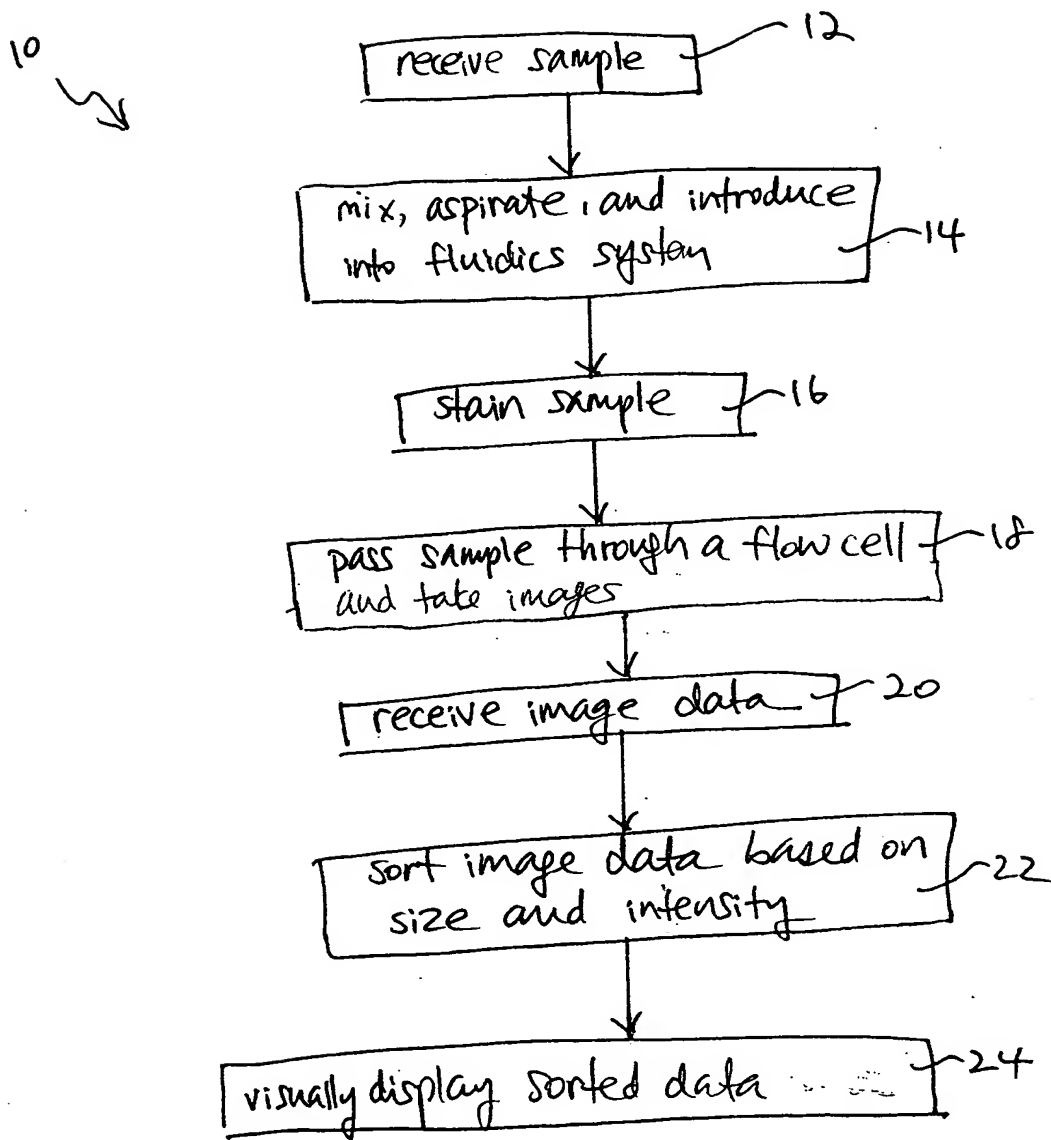 10
receive sample 12
mix, aspirate, and introduce
into fluidics system 14
stain sample 16
pass sample through a flow cell 18
and take images
receive image data 20
sort image data based on
size and intensity 22
visually display sorted data 24